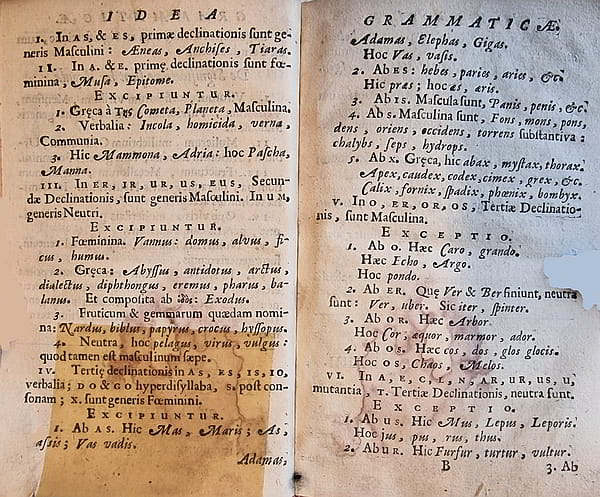 IDEA
I. In AS, & ES, primæ declinationis sunt ge-
neris Masculini: Æneas, Anchises, Tiaras.
II. In A. & E. primę declinationis sunt fœ-
minina, Musa, Epitome.
EXCIPIUNTUR.
1. Gręca à Της Cometa, Planeta, Masculina.
2. Verbalia: Incola, homicida, verna,
Communia.
3. Hic Mammona, Adria: hoc Pascha,
Manna.
III. In ER, IR, UR, US, EUS, Secun-
dæ Declinationis, sunt generis Masculini. In UM,
generis Neutri.
EXCIPIUNTUR.
1. Fœminina. Vannus: domus, alvus, fi-
cus, humus.
2. Gręca: Abyssus, antidotus, arctus,
dialectus, diphthongus, eremus, pharus, ba-
lanus. Et composita ab ὁδός: Exodus.
3. Fruticum & gemmarum quædam nomi-
na: Nardus, biblus, papyrus, crocus, hyssopus.
4. Neutra, hoc pelagus, virus, vulgus:
quod tamen est masculinum sæpe.
IV. Tertię declinationis in AS, ES, IS, IO,
verbalia; DO & GO hyperdisyllaba, S. post con-
sonam; X. sunt generis Fœminini.
EXCIPIUNTUR.
1. Ab AS. Hic Mas, Maris; As,
assis; Vas vadis.
Adamas,
GRAMMATICÆ.
Adamas, Elephas, Gigas.
Hoc Vas, vasis.
2. Ab ES: hebes, paries, aries, &c.
Hic præs; hoc æs, æris.
3. Ab IS. Mascula sunt, Panis, penis, &c.
4. Ab S. Masculina sunt, Fons, mons, pons,
dens, oriens, occidens, torrens substantiva:
chalybs, seps, hydrops.
5. Ab X. Gręca, hic abax, mystax, thorax.
Apex, caudex, codex, cimex, grex, &c.
Calix, fornix, spadix, phœnix, bombyx.
V. In O, ER, OR, OS, Tertiæ Declinatio-
nis, sunt Masculina.
EXCEPTIO.
1. Ab O. Hæc Caro, grando.
Hæc Echo, Argo.
Hoc pondo.
2. Ab ER. Quę Ver & Ber finiunt, neutra
sunt: Ver, uber. Sic iter, spinter.
3. Ab OR. Hæc Arbor.
Hoc Cor, æquor, marmor, ador.
4. Ab OS. Hæc cos, dos, glos glocis.
Hoc OS, Chaos, Melos.
VI. In A, E, C, L, N, AR, UR, US, U,
mutantia, T. Tertiæ Declinationis, neutra sunt.
EXCEPTIO.
1. Ab US. Hic Mus, Lepus, Leporis.
Hoc jus, pus, rus, thus.
2. Ab UR. Hic Furfur, turtur, vultur.
B 3. Ab